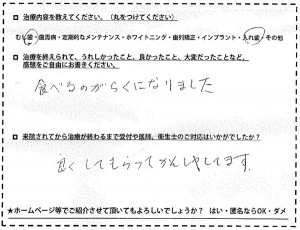 □ 治療内容を教えてください。（丸をつけてください）
むし歯・歯周病・定期的なメンテナンス・ホワイトニング・歯列矯正・インプラント・入れ歯・その他
□ 治療を終えられて、うれしかったこと、良かったこと、大変だったことなど、
感想をご自由にお書きください。
食べるのがらくになりました
□ 来院されてから治療が終わるまで受付や医師、衛生士のご対応はいかがでしたか？
良くしてもらってかんしゃしてます。
★ホームページ等でご紹介させて頂いてもよろしいでしょうか？ はい・匿名ならOK・ダメ